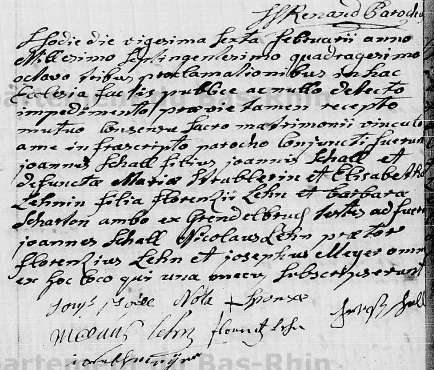 Renard Paroch
Hodie die vigesima sexta februarii anno
Millesimo septingentesimo quadragesimo
octavo tribus proclamationibus in hac
Ecclesia factis publice ac nullo detecto
impedimento, praevie tamen recepto
mutuo consensu sacro matrimonii vinculo
a me infrascripto parocho conjuncti fuerunt
joannes Schall filius joannis Schall et
defunctae Mariae et Elisabetha
Lehnin filia florenzii Lehn et barbara
ambo ex Grendelbruch testes adfuere
joannes Schall Nicolaus Lehn praetor
florenzius Lehn et josephus Meyer omnes
ex hoc loco qui una mecum subscripserunt
Nota + sponsae
Lehn florentz Lehn
artement du Bas-Rhin
partement du Bas-Rhin